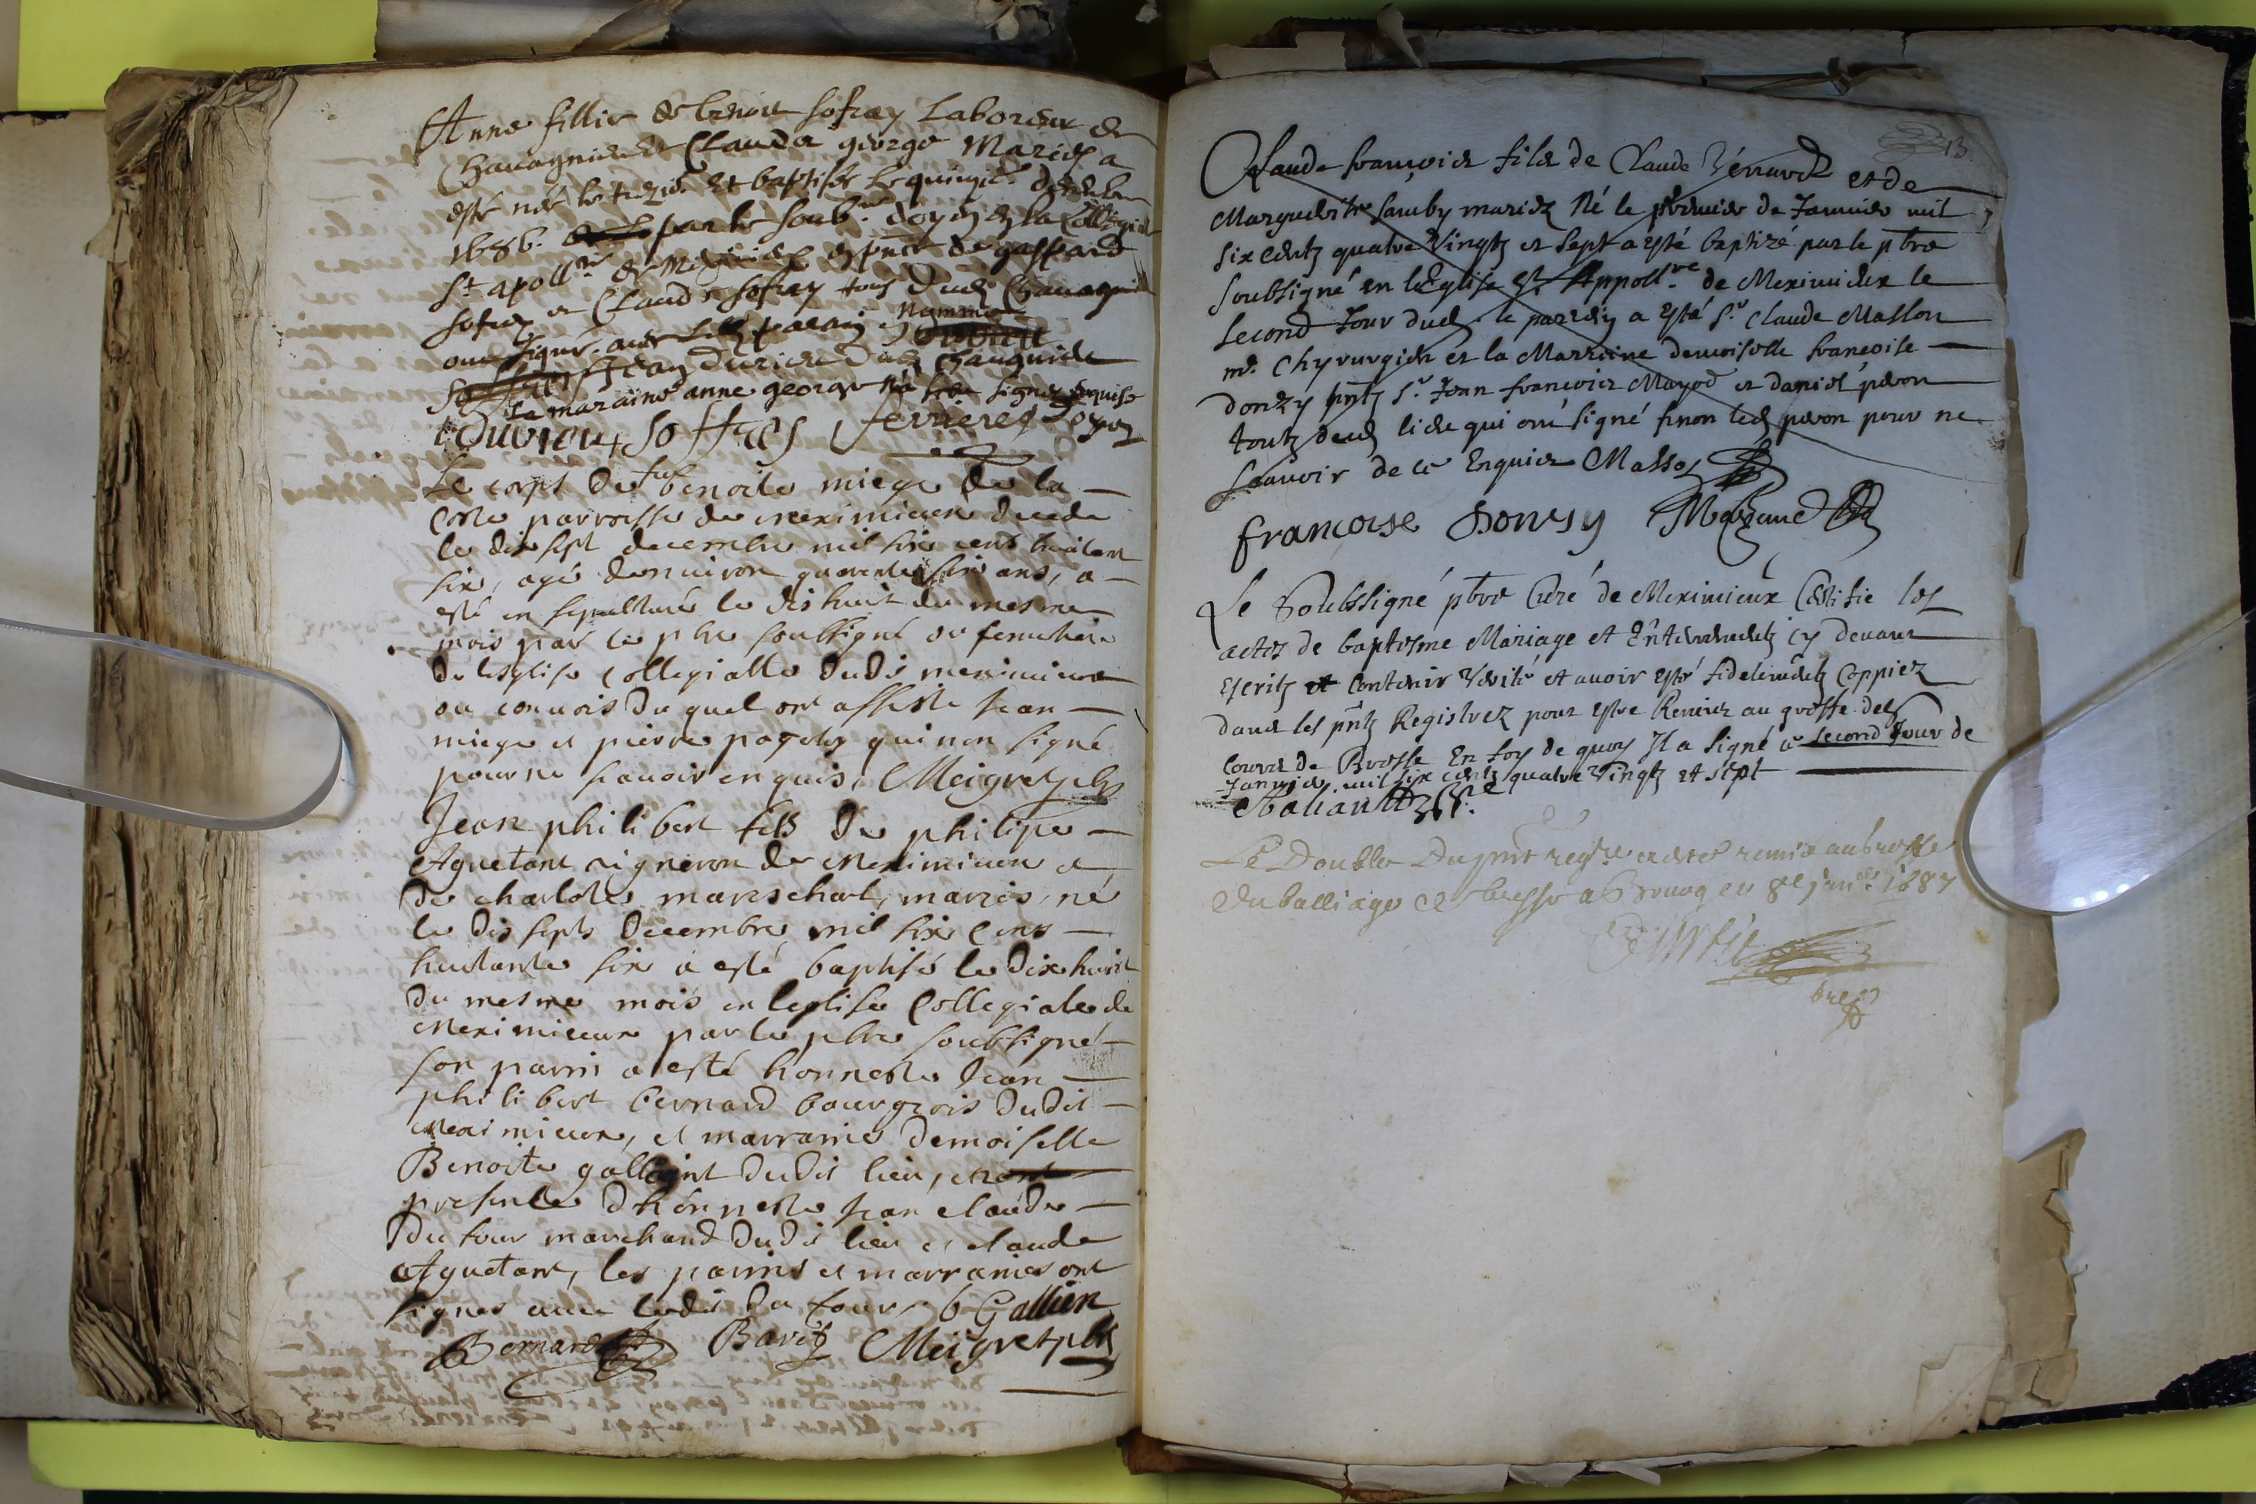 Anne fillie de benoit sofray Laboreur de
Chavagnieu et Clauda george Mariés a
esté née le trezie. et baptisée le quinzie. decembre
1686. par le soub.né doyen de la Collegial
St apoll.re de meximieux en pnce de gaspard
sofrey et Claude sofray tous dud. Chavagnieu
nommé
ont signé. avec led. parain
Jean Durieu dud. Chavagnieu
la maraine anne george na sceu signer enquise
Duvrieu soffrey ferrieres doyen
Le corps de fut benoite miege de la
Coste parroisse de meximieux decede
le dix sept decembre mil six cens huitant
six, agé denuiron quarente six ans, a
esté en sepulturé le dishuit du mesme
mois par le pbre soubsigné au
de lesglise collegialle dudit meximieux
au convois du quel ont assisté Jean
miege et pierre pagety qui non signé
pour ne scavoir enquis, Meigret pbr
Jean philibert fils de philipe
Aguetant vigneron de Meximieux et
de charlote mareschal, mariés, né
le dis septs decembre mil six Cens
huitante six a esté baptisé le dix huit
du mesme mois en leglise Collegiale de
Meximieux par le pbre soubsigné
son parin a esté honneste Jean
philibert bernard bourgeois dudit
Meximieux, et marraine demoiselle
Benoite gallient dudit lieu,
presence dhonneste Jean claude
Du four marchand dudit lieu et claude
Aguetant, les parins et marraines ont
signes avec ledit Du four b Gallien
Bernard Bariq Meigret pbr
13
Claude francois fils de Claude Vérnard et de
Marguerite samby mariez Né le premier de Januier mil
six centz quatre Vingtz et sept a esté baptizé par le pbre
soubsigné en lEglise St Appoll.re de Meximieux le
second Jour dud. le parrein a esté Sr Claude Masson
me. Chyrurgien et la Marraine demoiselle francoise
donzy pntz Sr Jean francois Mayod et daniel peron
toutz dud. lieu qui ont signé sinon led. peron pour ne
scauoir de ce Enquiez Masson
francoise Donzy
Le Soubssigné pbre Curé de Meximieux Certifie les
actes de baptesme Mariage et Enterrementz cy deuant
Escritz et Contenir Verité et auoir esté fidelement Coppiez
dans les pntz Registrez pour estre Remise au greffe des
Cours de Bresse En foy de quoy Jl a signé ce second Jour de
Januier mil six centz quatre Vingtz et sept
Le Double Du pnt reg.re a este remis au greffe
du balliage de bresse a Bourg ce 8e janv. 1687